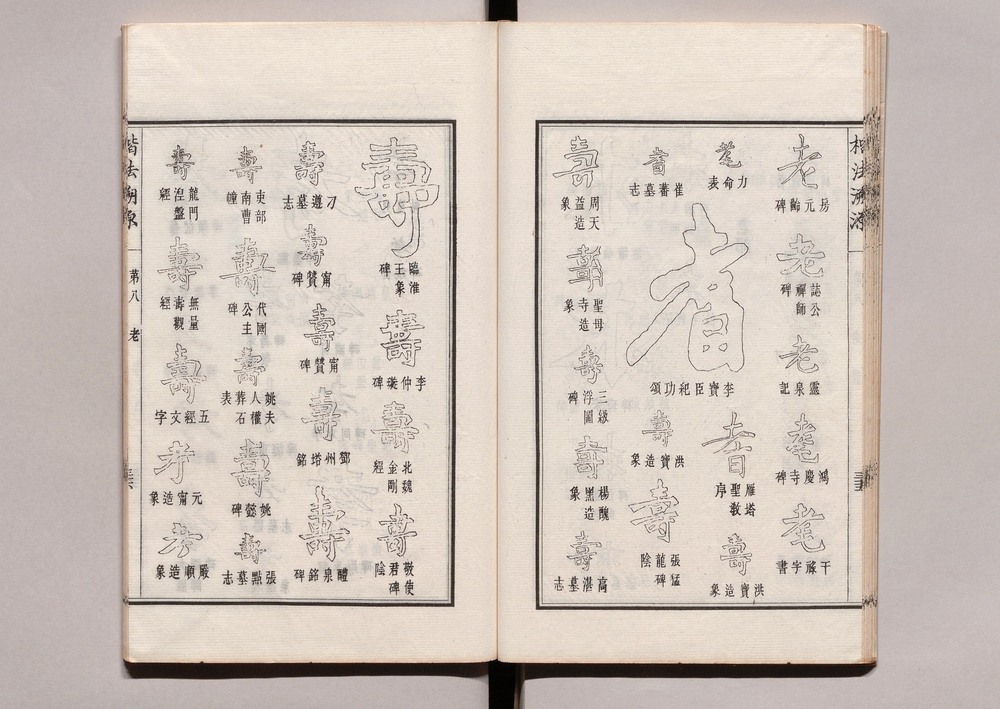 楷法溯源
老
房元齡碑
老
誌公禪師碑
老
靈泉記
耄
鴻慶寺碑
耄
干祿字書
耄
力命表
耆
李寶臣紀功頌
耆
雁塔聖教序
壽
洪寶造象
耆
崔蕃墓志
壽
洪寶造象
壽
張猛龍碑陰
壽
周天益造象
壽
聖母寺造象
壽
三級浮圖碑
壽
楊黑醜造象
壽
高湛墓志
壽
臨淮王象碑
壽
李仲璇碑
壽
北魏金剛經
壽
敬使君碑陰
壽
刁遵墓志
壽
甯贊碑
壽
甯贊碑
壽
鄧州塔銘
壽
醴泉銘碑
壽
吏部南曹幢
壽
代國公主碑
壽
姚夫人權葬石表
壽
姚懿碑
壽
張點墓志
壽
龍門湼盤經
壽
無量壽觀經
壽
五經文字
考
元甯造象
考
殷順造象
楷法溯源
第八
老